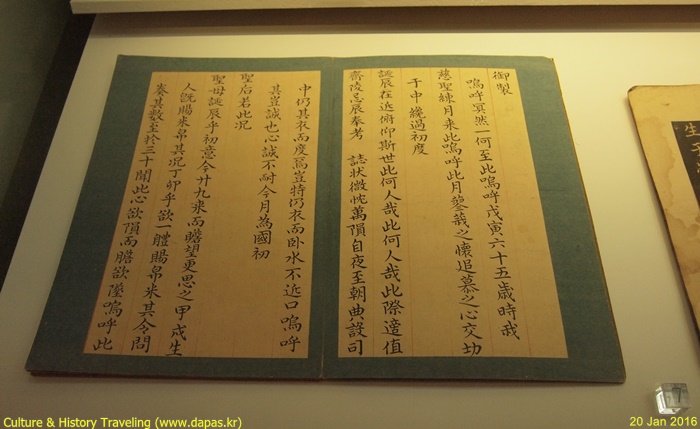 御製
嗚呼冥然一何至此嗚呼戊寅六十五歲時我
慈聖練月來此嗚呼此月蓼莪之懷追慕之心交切
于中纔過初度
誕辰在近俯仰斯世此何人哉此何人哉此際適值
齋陵忌辰奉考 誌狀微忱萬隕自夜至朝典設司
中仍其衣而度焉豈特仍衣而臥水不近口嗚呼
其豈誠也心誠不耐今月為國初
聖后若此况
聖母誕辰乎初意今廿九來而瞻望更思之甲戌生
人既賜米帛其况丁卯乎欲一體賜帛米其令問
奏其數至於三十聞此心欲隕而膽欲墜嗚呼此
Culture & History Traveling (www.dapas.kr)
20 Jan 2016